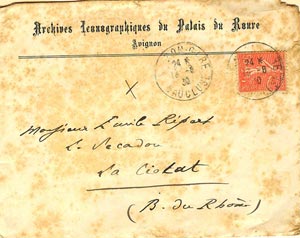 Archives Iconographiques du Palais du Roure
Avignon
Monsieur Emile Ripert
Le Secadou
La Ciotat
(B. du Rhône)